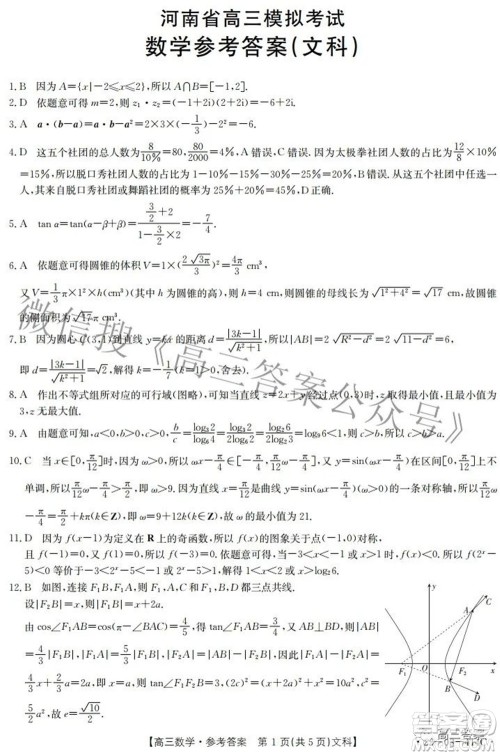 河南省高三模拟考试
数学参考答案(文科)
1. B 因为 A={x|-2≤x≤2},所以 A∩B=[-1,2].
2. D 依题意可得 m=2,则 z₁·z₂=(-1+2i)(2+2i)=-6+2i.
3. A a·(b-a)=a·b-a²=2×3×(-1/3)-2²=-6.
4. D 这五个社团的总人数为 8/10%=80, 80/2000=4%,A 错误,C 错误. 因为太极拳社团人数的占比为 12/80×10%
=15%,所以脱口秀社团人数的占比为 1-10%-15%-30%-25%=20%,B 错误. 从这五个社团中任选一
人,其来自脱口秀社团或舞蹈社团的概率为 25%+20%=45%,D 正确.
5. A tan α=tan(α-β+β)=(3/2+2)/(1-3/2×2)=-7/4.
6. A 依题意可得圆锥的体积 V=1×(2∛3π/3)²=4π/3 cm³,
又 V=1/3π×1²×h(cm³)(其中 h 为圆锥的高),则 h=4 cm,则圆锥的母线长为 √(1²+4²)=√17 cm,故圆锥
的侧面积为 √17π cm².
7. B 因为圆心 C(3,1)到直线 y=kx 的距离 d=|3k-1|/√(k²+1),所以|AB|=2√(R²-d²)=2√(11-d²)=6,
即 d=|3k-1|/√(k²+1)=√2,解得 k=-1/7(k=1>0,舍去).
8. A 作出不等式组所对应的可行域(图略),可知当直线 z=2x+y 经过点(0,3)时,z 取得最小值,且最小值为
3,z 无最大值.
9. A 由题意可知,a<0,b>0,c>0, b/c=
10. C 当 x∈[0,π/12]时,因为 ω>0,所以 ωx-π/4∈[-π/4,π/12ω-π/4],又 y=sin(ωx-π/4)在区间[0,π/12]上不
单调,所以 π/12ω-π/4>π/2,即 ω>9. 因为直线 x=π/12是曲线 y=sin(ωx-π/4)(ω>0)的一条对称轴,所以 π/12ω
-π/4=π/2+kπ(k∈Z),即 ω=9+12k(k∈Z),故 ω 的最小值为 21.
11. D 因为 f(x-1)为定义在 R 上的奇函数,所以 f(x)的图象关于点(-1,0)对称,
且 f(-1)=0,又 f(1)=0,所以 f(-3)=0. 依题意可得,当-3<x<-1 或 x>1 时,f(x)<0. 所以 f(2ˣ-
5)<0 等价于-3<2ˣ-5<-1 或 2ˣ-5>1,解得 1<x<2 或 x>log₂6.
12. B 如图,连接 F₁B,F₁A,则 F₁,A,C 和 F₁,B,D 都三点共线.
设|F₂B|=x,则|F₁B|=x+2a.
由 cos∠F₁AB=cos(π-∠BAC)=4/5,得 tan∠F₁AB=3/4,又 AB⊥BD,则|AB|
=4/3|F₁B|,|F₁A|=5/3|F₁B|,|AF₂|=|AB|-|F₂B|,因此|F₁A|-|AF₂|=
4/3x+2/3a=2a,即 x=a,则 tan∠F₁F₂B=3,(2c)²=(x+2a)²+x²=10a²,c²=
5/2a²,故 e=√10/2.
y
A
C
F₁
O
F₂
x
B
D
微信搜《高三答案公众号》
【高三数学·参考答案 第 1 页(共 5 页)文科】